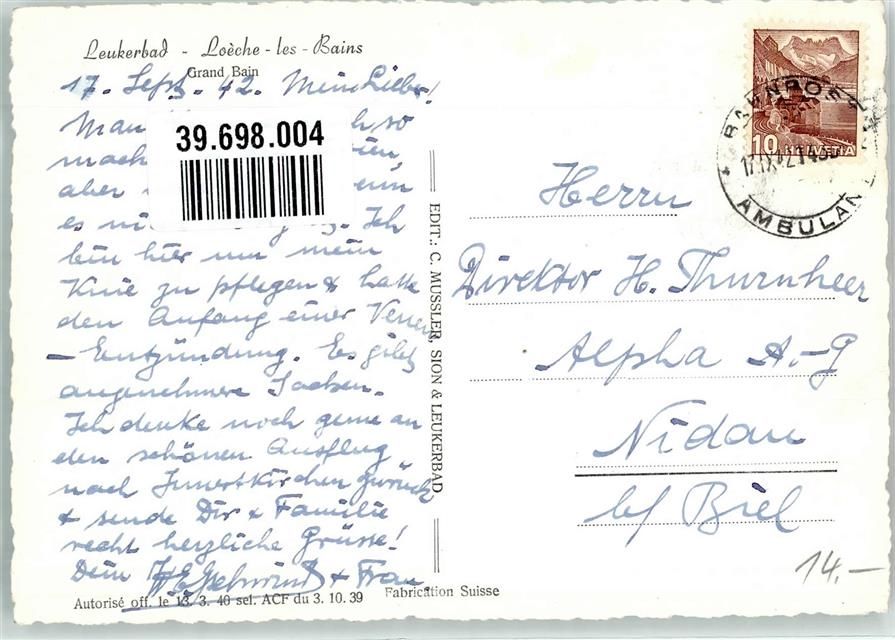 Leukerbad - Loèche-les-Bains
Grand Bain
17. Sept. 42. Mein Lieber!
Man so
mach
aber
es Ich
bin hier um mein
Knie zu pflegen & hatte
den Anfang einer Venen
- Entzündung. Es gibt
angenehmere Sachen.
Ich denke noch gerne an
den schönen Ausflug
nach Innertkirchen zurück
& sende Dir & Familie
recht herzliche Grüsse!
Dein & Frau
Autorisé off. le 13. 3. 40 sel. ACF du 3. 10. 39 Fabrication Suisse
39.698.004
EDIT.: C. MUSSLER, SION & LEUKERBAD
10 HELVETIA
AMBULAN
Herrn
Direktor H. Thurnheer
Alpha A.-G
Nidau
b/ Biel
14.-